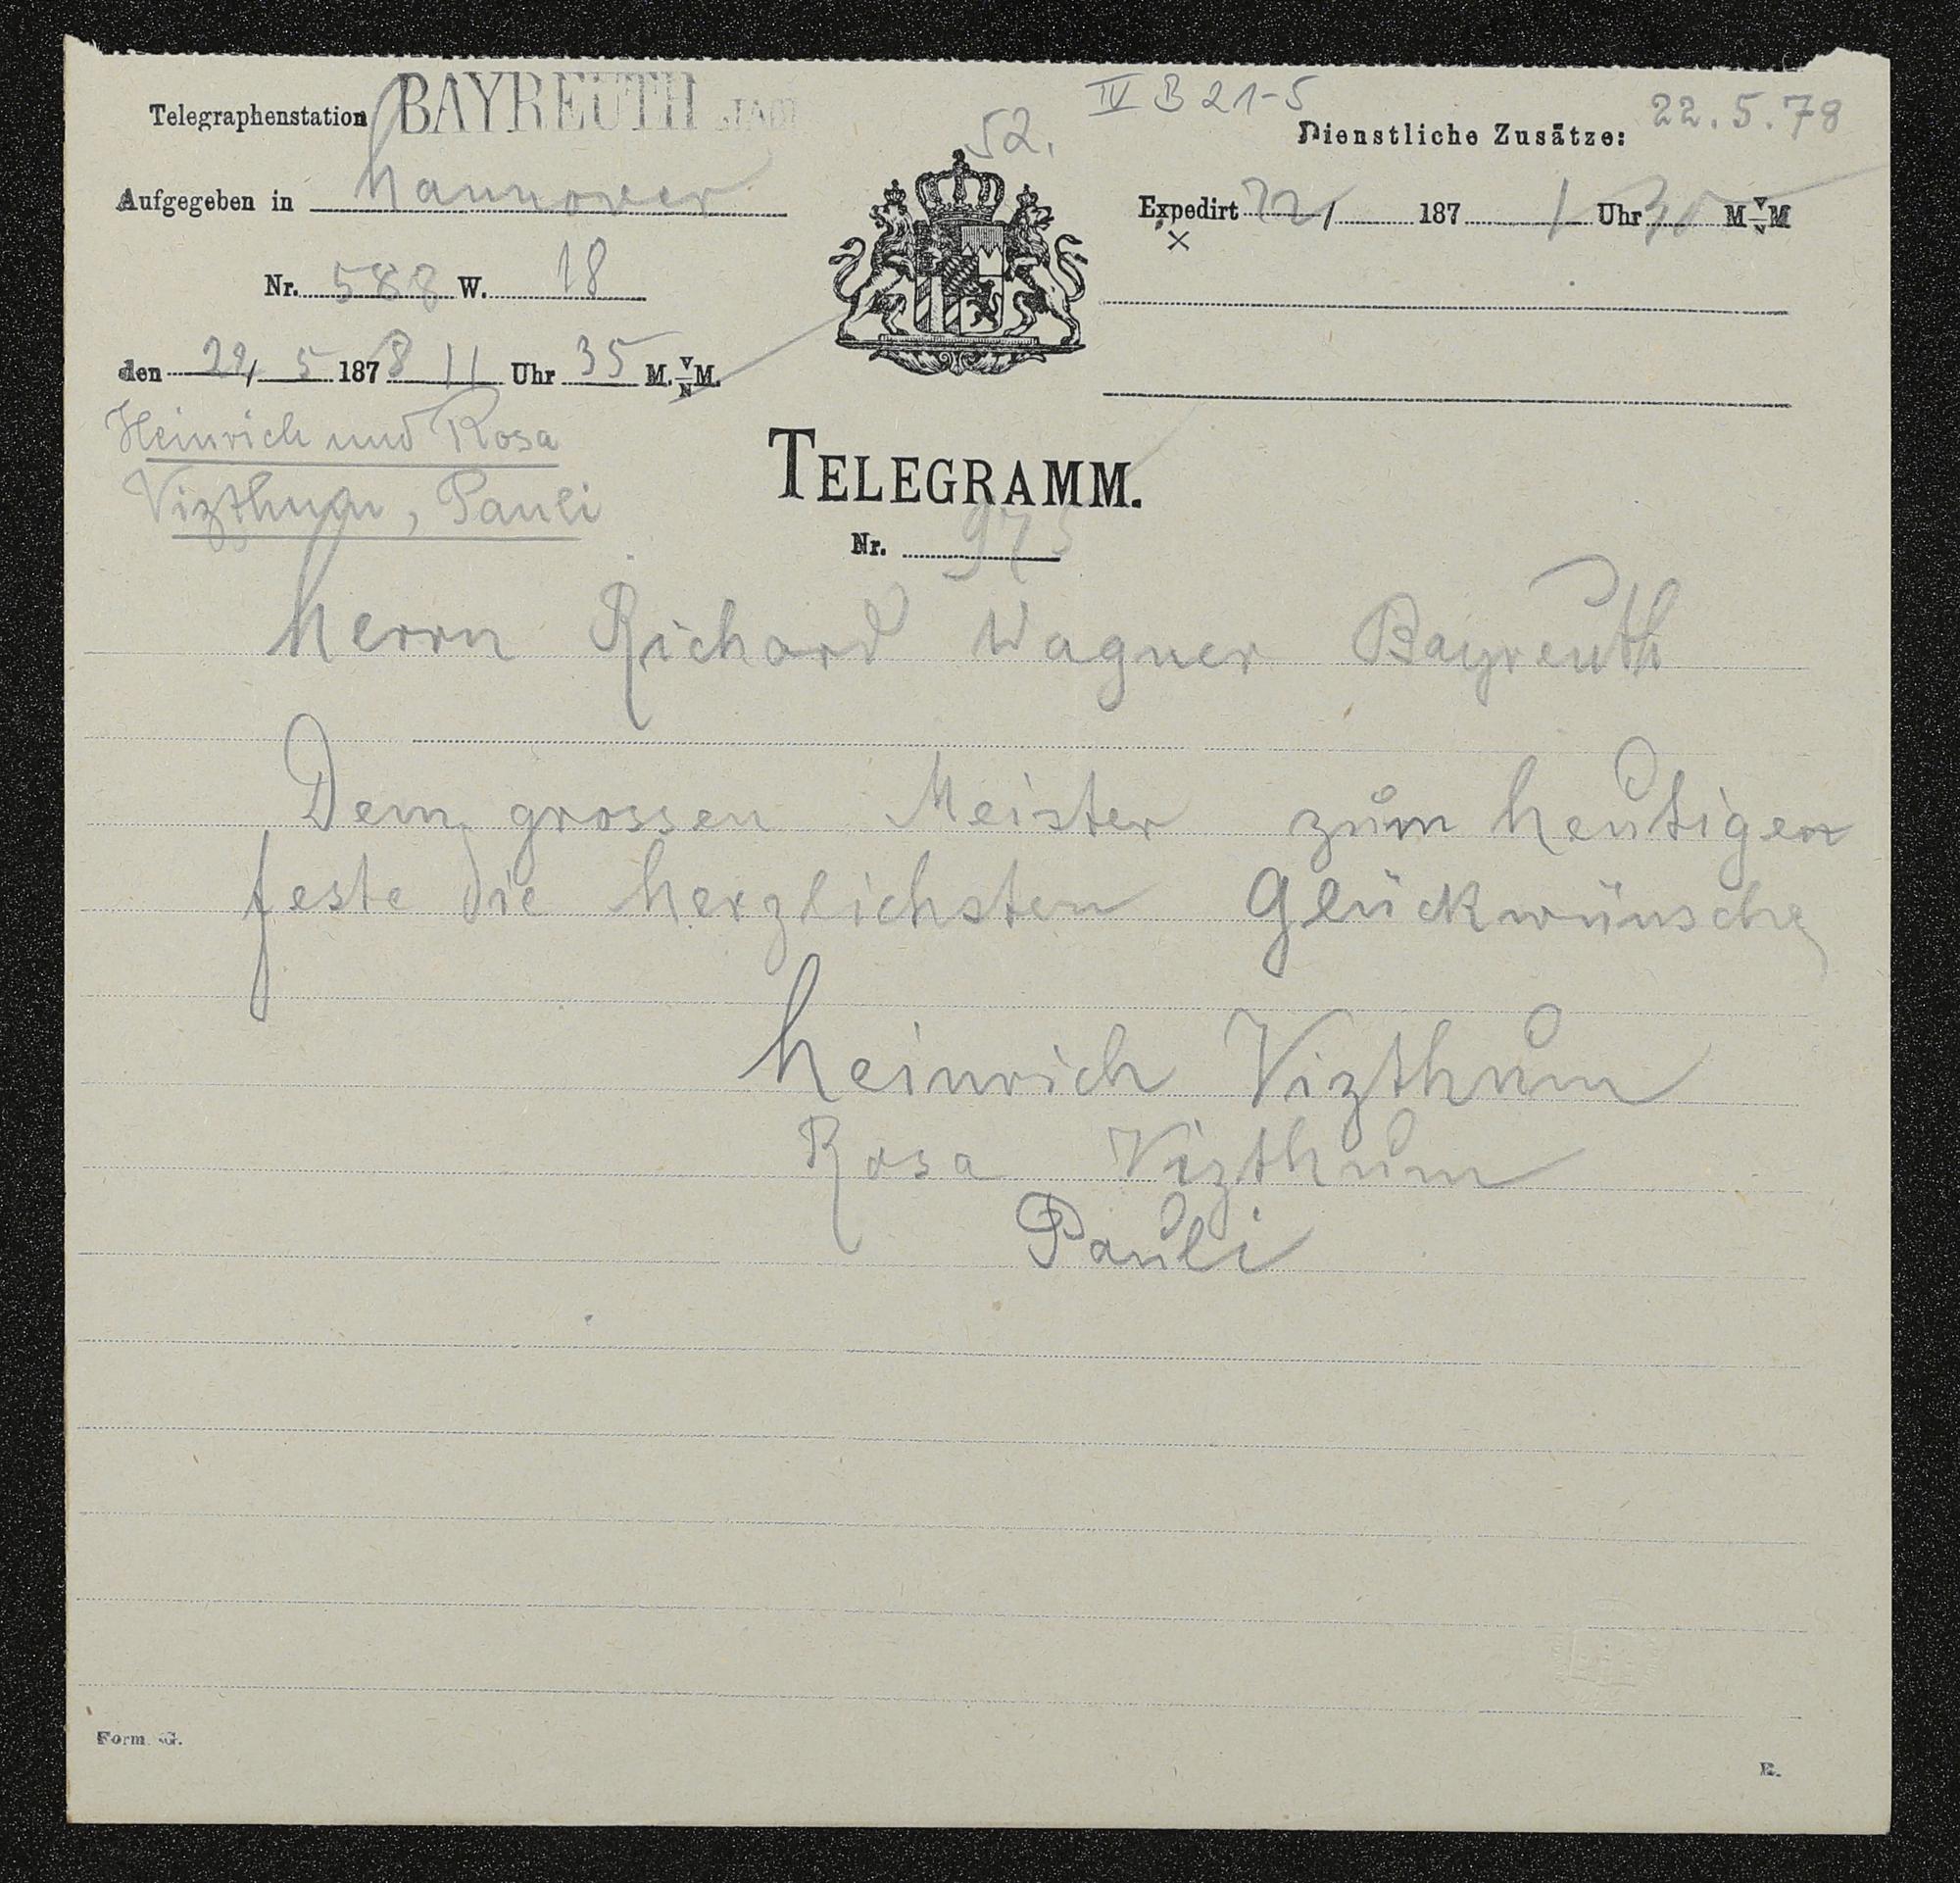 Telegraphenstation BAYREUTH STADT
52.
IV B 21-5
Dienstliche Zusätze: 22.5.78
Aufgegeben in Hannover
Expedirt 22/ 187 1 Uhr 30 M V/N M
Nr. 588 W. 18
den 22/ 5 1878 11 Uhr 35 M. V/N M.
Heinrich und Rosa
Vizthum, Pauli
TELEGRAMM.
Nr. 975
Herrn Richard Wagner Bayreuth
Dem grossen Meister zum heutigen
feste die herzlichsten Glückwünsche
Heinrich Vizthum
Rosa Vizthum
Pauli
Form. G.